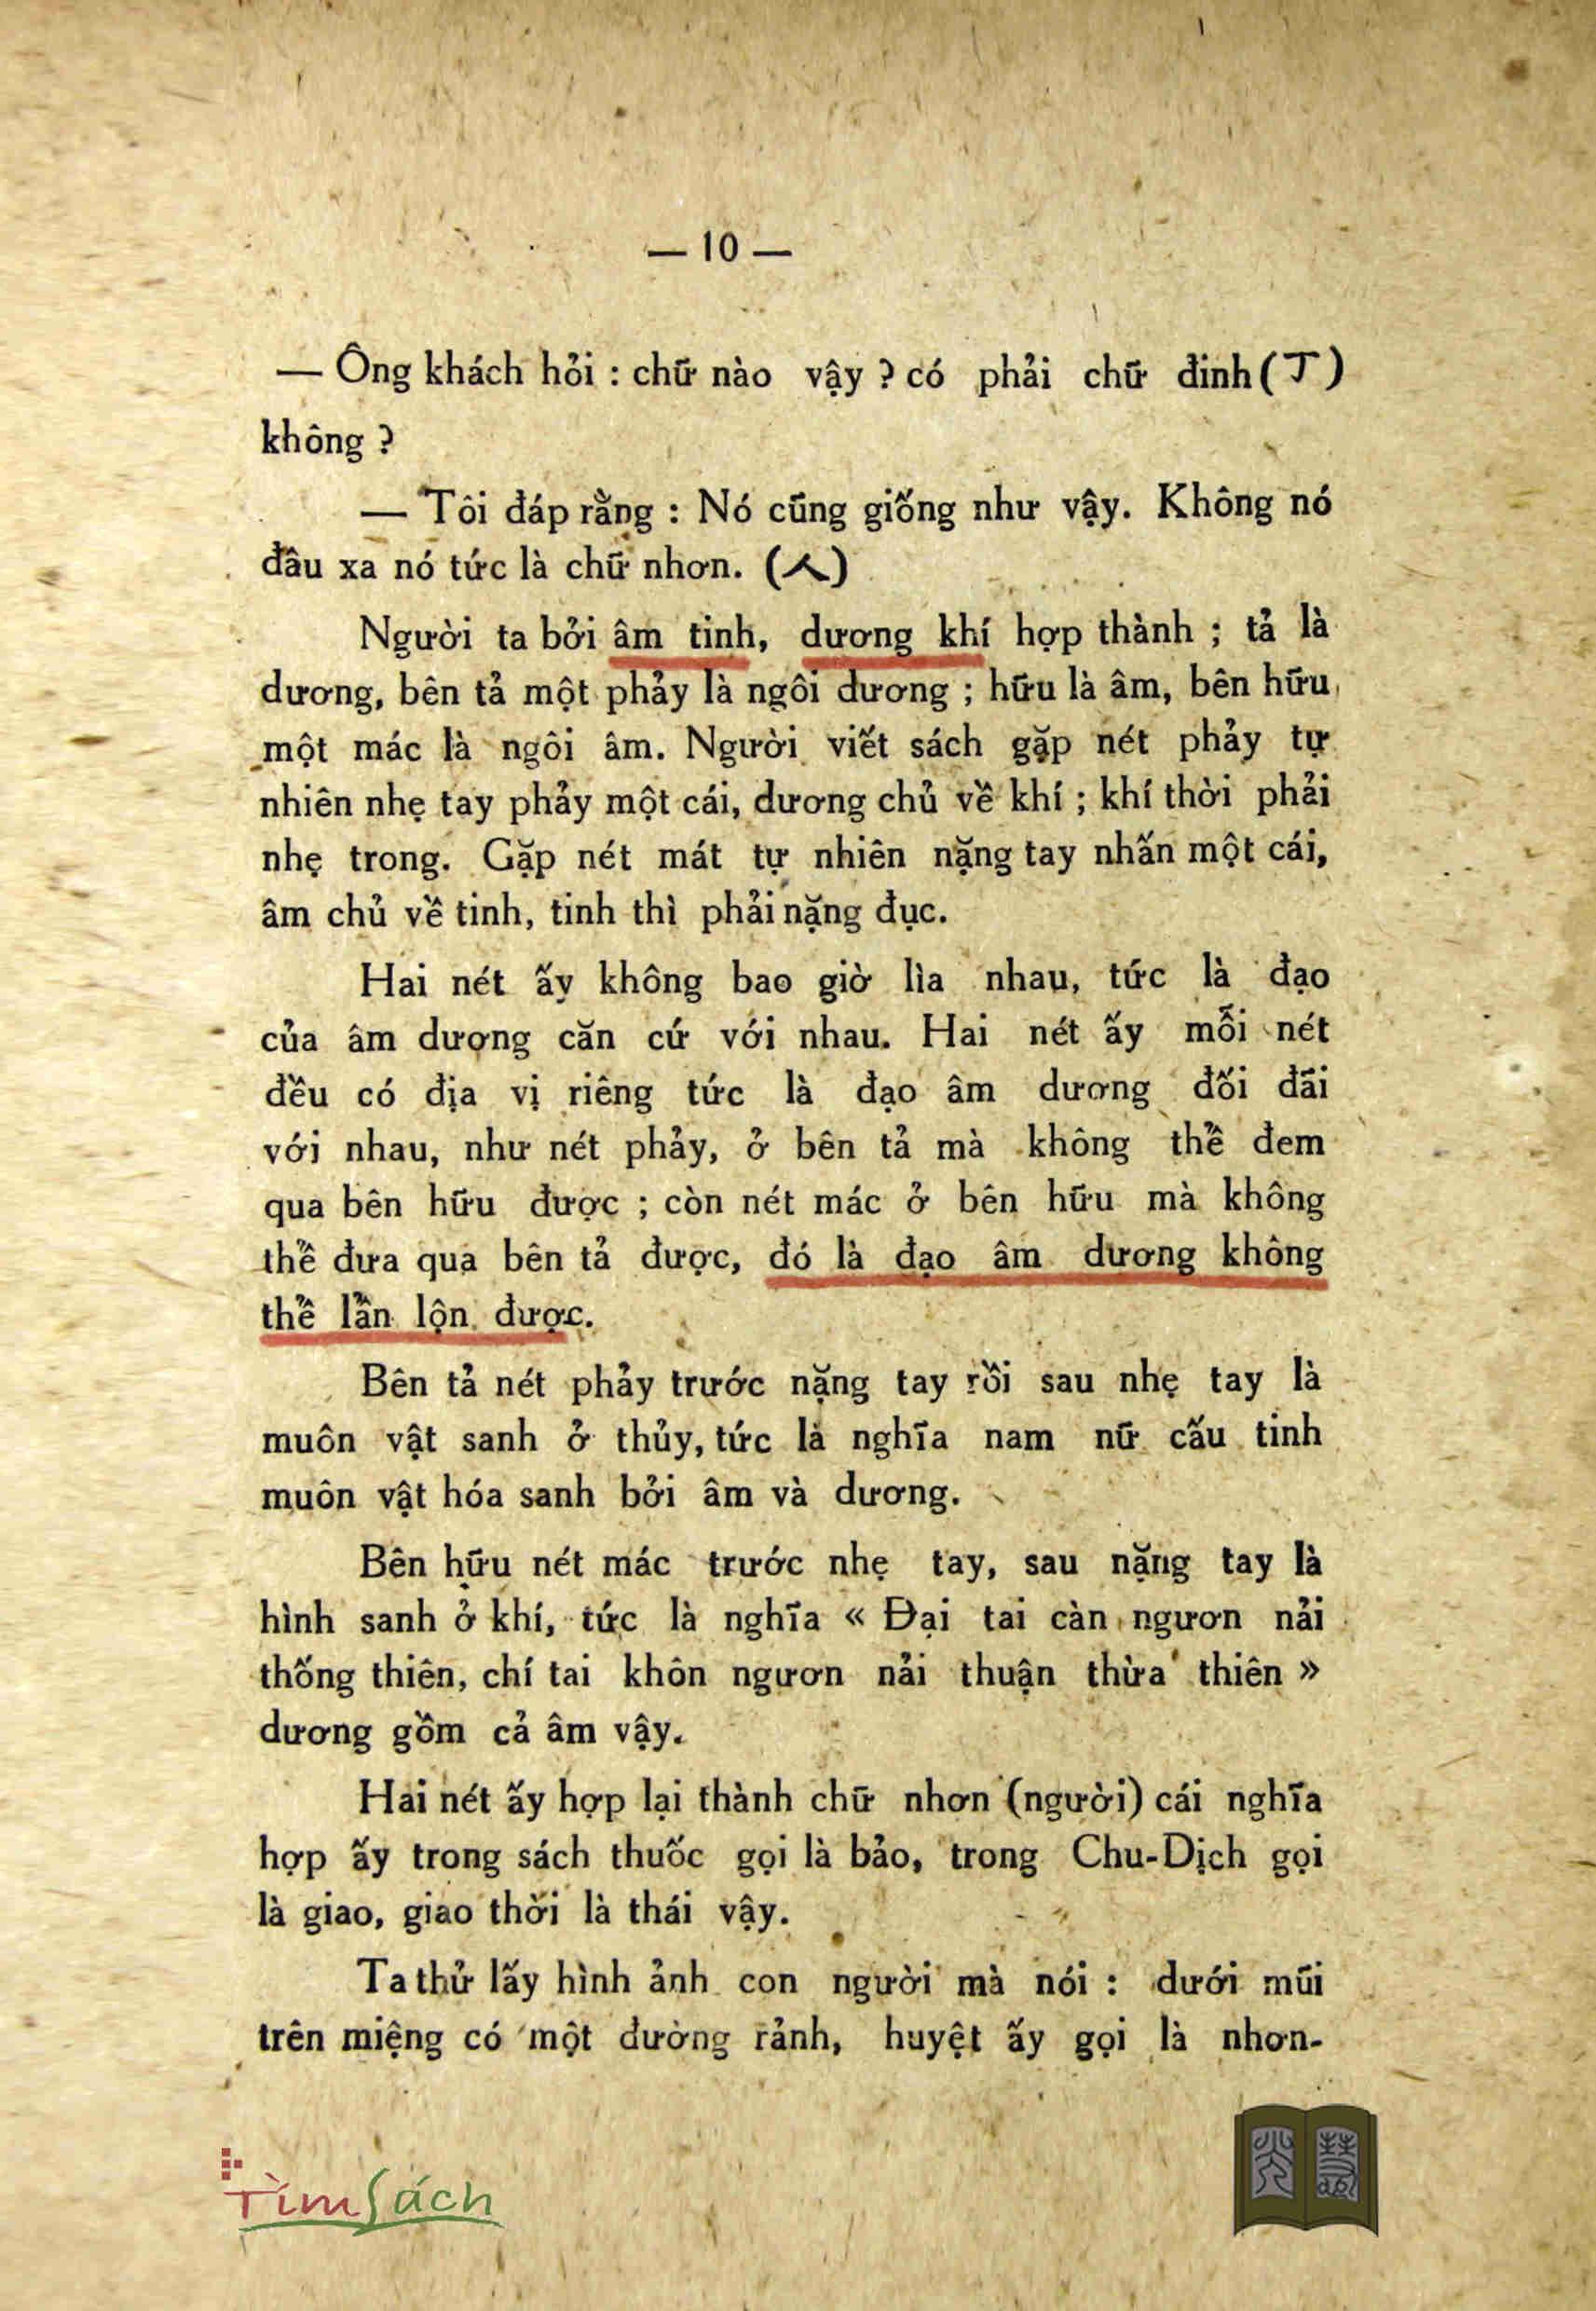 — 10 —
— Ông khách hỏi : chữ nào vậy ? có phải chữ đinh (丁)
không ?
— Tôi đáp rằng : Nó cũng giống như vậy. Không nó
đâu xa nó tức là chữ nhơn. (人)
Người ta bởi âm tinh, dương khí hợp thành ; tả là
dương, bên tả một phảy là ngôi dương ; hữu là âm, bên hữu
một mác là ngôi âm. Người viết sách gặp nét phảy tự
nhiên nhẹ tay phảy một cái, dương chủ về khí ; khí thời phải
nhẹ trong. Gặp nét mát tự nhiên nặng tay nhấn một cái,
âm chủ về tinh, tinh thì phải nặng đục.
Hai nét ấy không bao giờ lìa nhau, tức là đạo
của âm dương căn cứ với nhau. Hai nét ấy mỗi nét
đều có địa vị riêng tức là đạo âm dương đối đãi
với nhau, như nét phảy, ở bên tả mà không thể đem
qua bên hữu được ; còn nét mác ở bên hữu mà không
thể đưa qua bên tả được, đó là đạo âm dương không
thể lẫn lộn được.
Bên tả nét phảy trước nặng tay rồi sau nhẹ tay là
muôn vật sanh ở thủy, tức là nghĩa nam nữ cấu tinh
muôn vật hóa sanh bởi âm và dương.
Bên hữu nét mác trước nhẹ tay, sau nặng tay là
hình sanh ở khí, tức là nghĩa « Đại tai càn ngươn nải
thống thiên, chí tai khôn ngươn nải thuận thừa thiên »
dương gồm cả âm vậy.
Hai nét ấy hợp lại thành chữ nhơn (người) cái nghĩa
hợp ấy trong sách thuốc gọi là bảo, trong Chu-Dịch gọi
là giao, giao thời là thái vậy.
Ta thử lấy hình ảnh con người mà nói : dưới mũi
trên miệng có một đường rảnh, huyệt ấy gọi là nhơn-
TìmSách